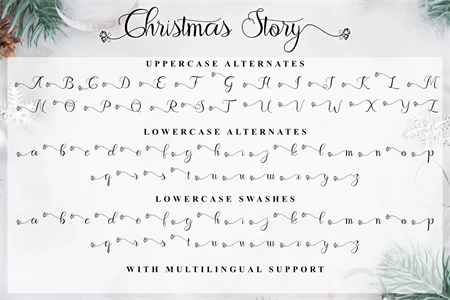 Christmas Story
UPPERCASE ALTERNATES
A B C D E F G H I J K L M
N O P Q R S T U V W X Y Z
LOWERCASE ALTERNATES
a b c d e f g h i j k l m n o p
q r s t u v w x y z
LOWERCASE SWASHES
a b c d e f g h i j k l m n o p
q r s t u v w x y z
WITH MULTILINGUAL SUPPORT